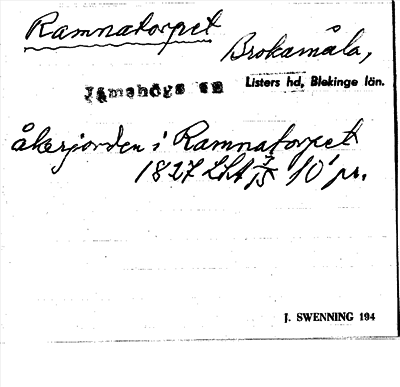 Ramnatorpet
Brokamåla,
Jämshögs sn
Listers hd, Blekinge län.
åkerjorden i Ramnatorpet
1827 Lht 7/15 10 pr.
J. SWENNING 194